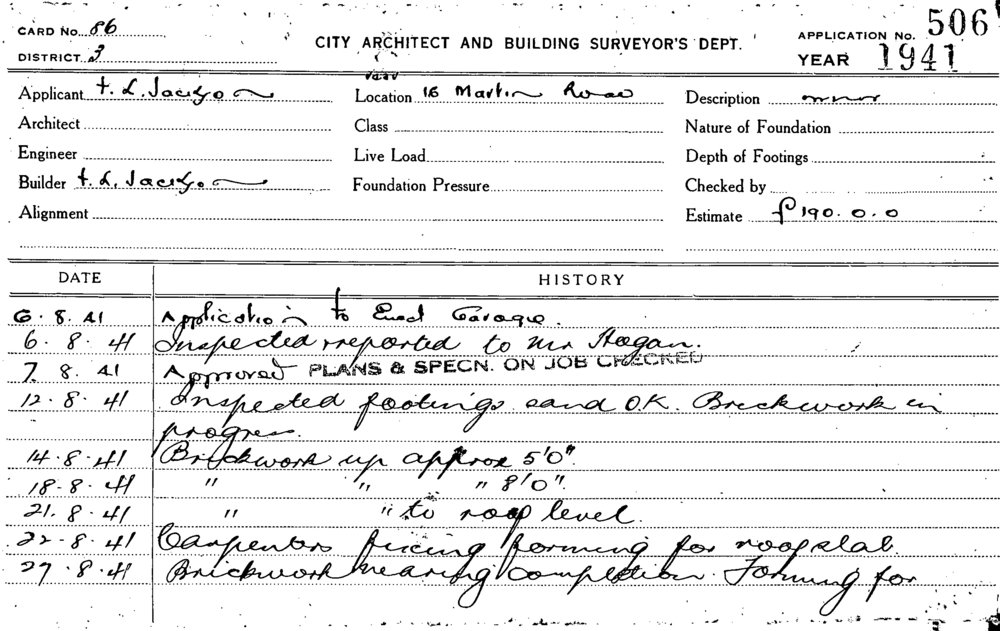 CARD No. 86
DISTRICT. 3
CITY ARCHITECT AND BUILDING SURVEYOR'S DEPT.
APPLICATION No. 506
YEAR 1941
Applicant F. L. Jackson
Location 16 Martin Road
Description
Architect
Class
Nature of Foundation
Engineer
Live Load
Depth of Footings
Builder F. L. Jackson
Foundation Pressure
Checked by
Alignment
Estimate £190.0.0
DATE HISTORY
6.8.41 Application to Erect Garage.
6.8.41 Inspected reported to Mr Hogan.
7.8.41 Approved PLANS & SPECN. ON JOB CHECKED
12.8.41 Inspected footings sand O.K. Brickwork in
progress.
14.8.41 Brickwork up approx 5'0".
18.8.41 " " " 8'0".
21.8.41 " " to roof level.
22.8.41 Carpenters fixing forming for roof slab
27.8.41 Brickwork nearing completion. Forming for